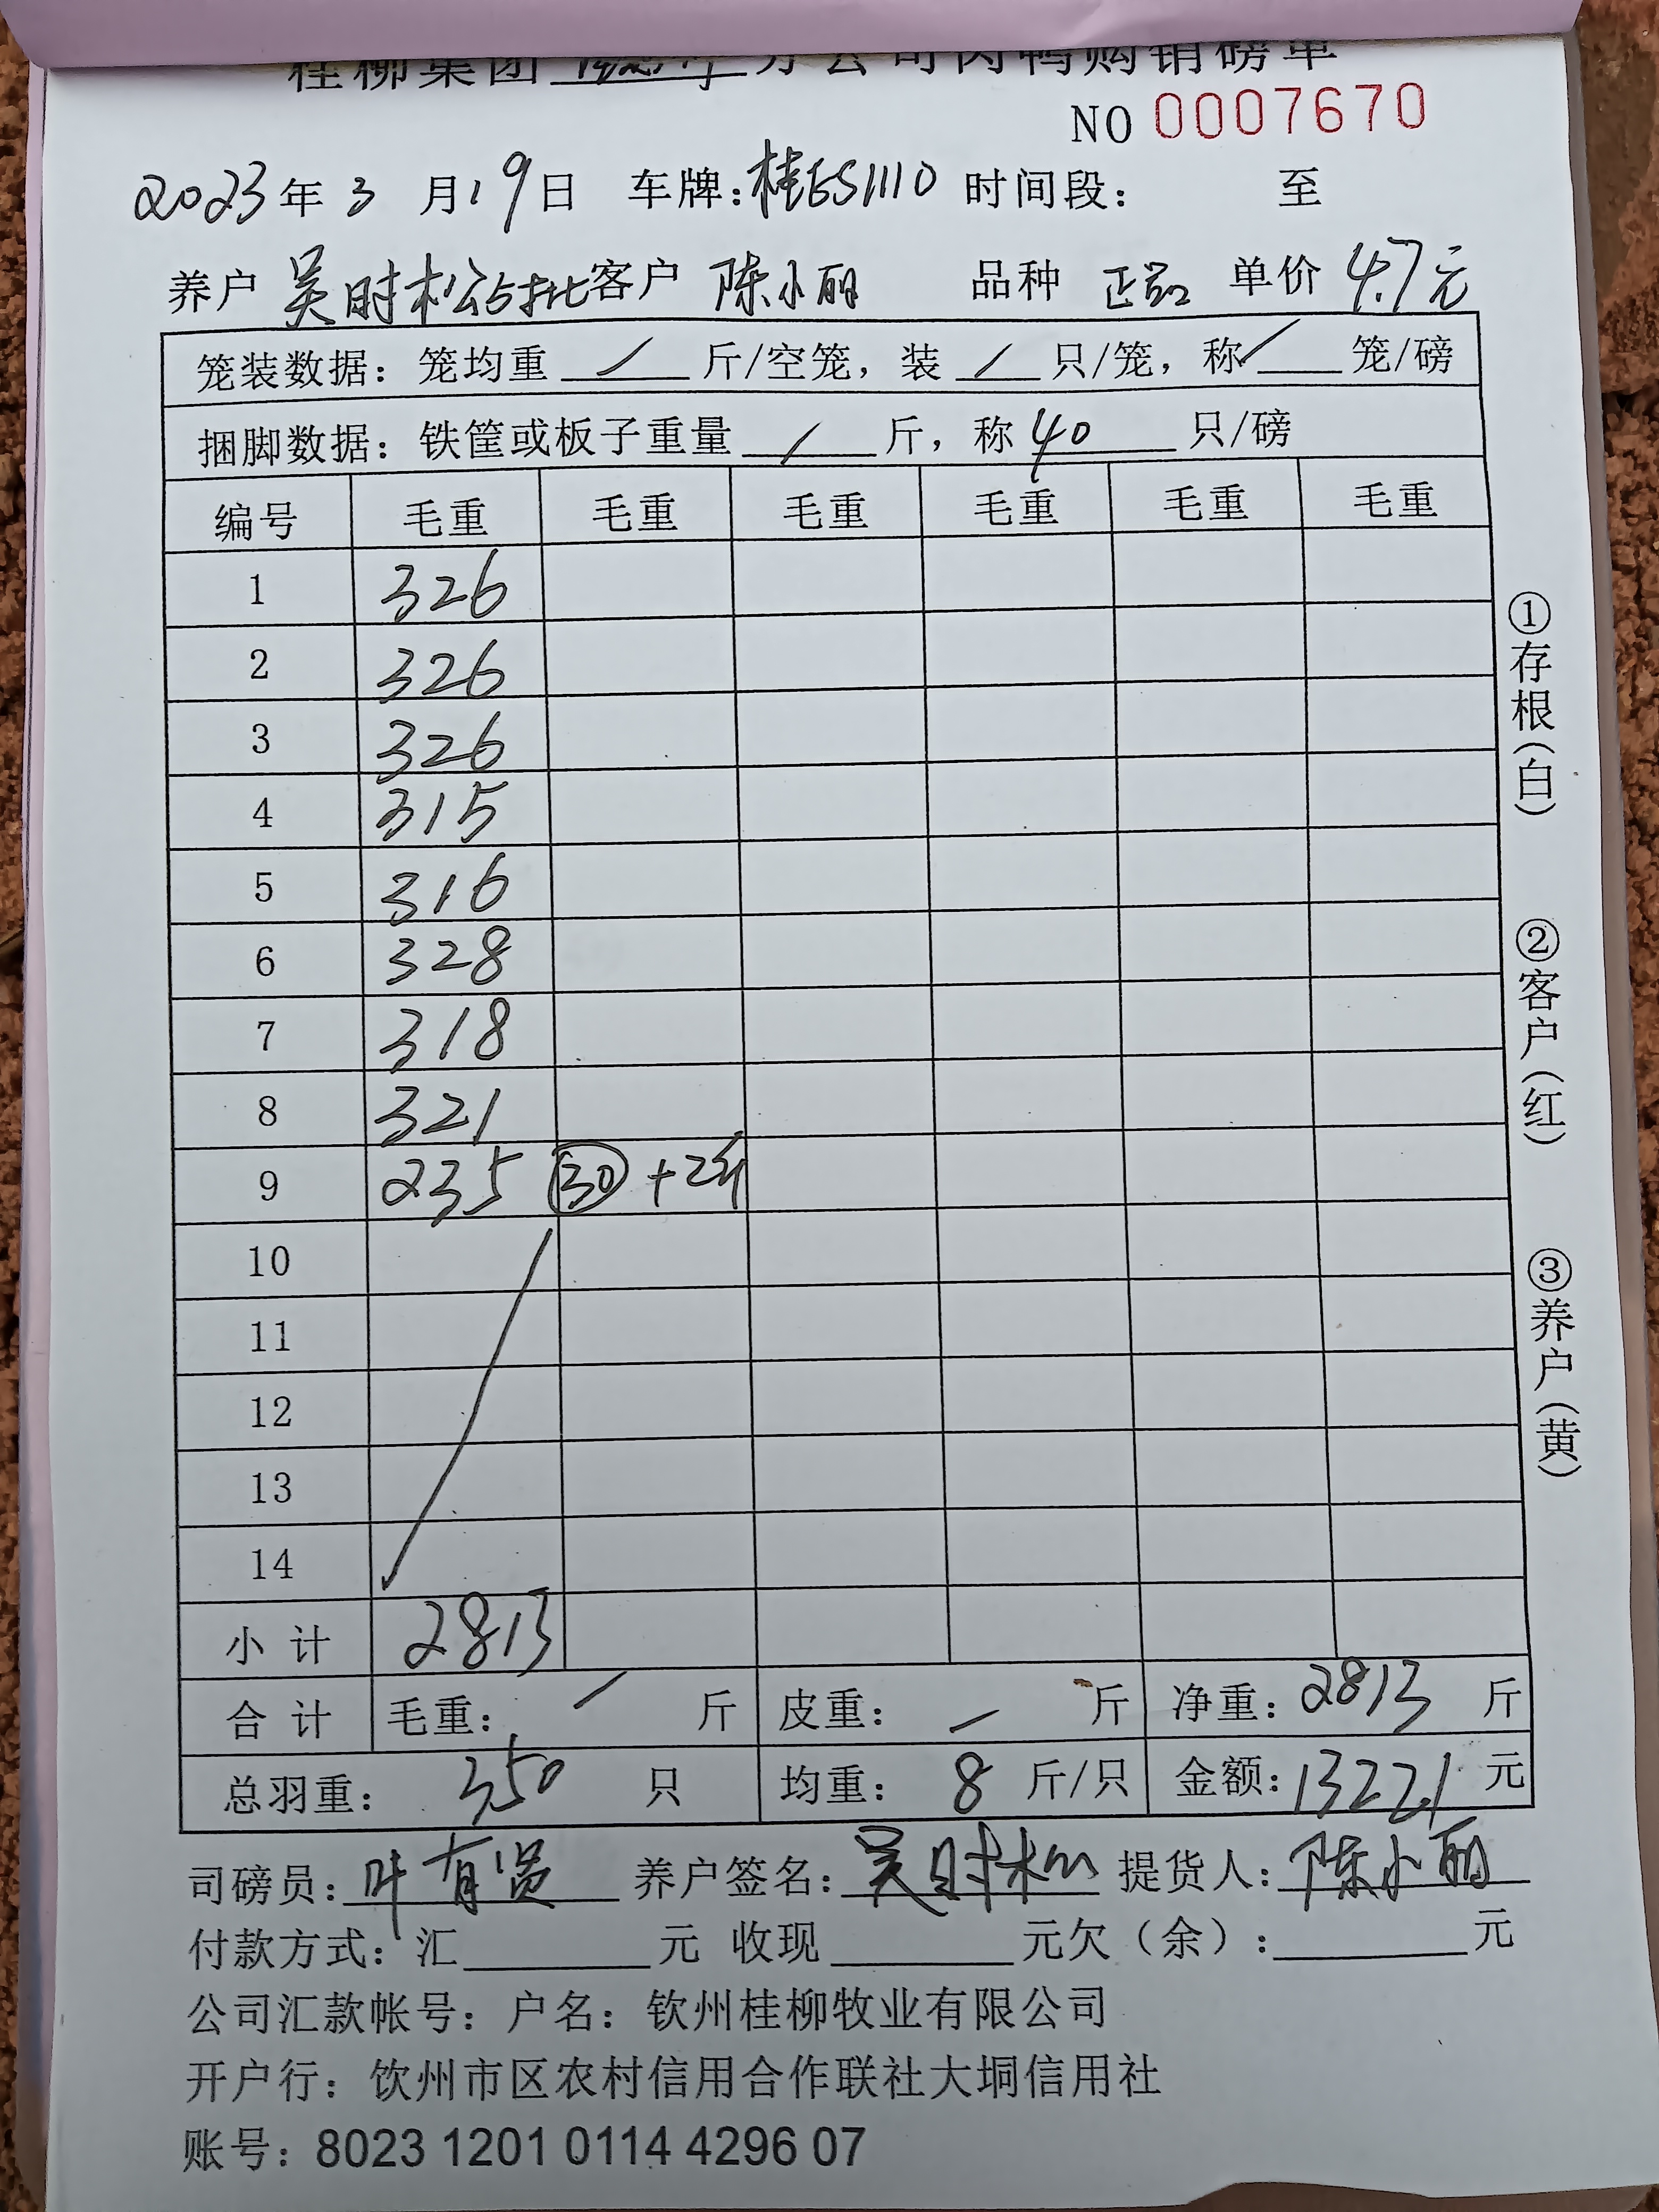 桂柳集团 分公司肉鸭购销磅单
NO 0007670
2023年3月19日 车牌:桂ES1110 时间段: 至
养户 吴时松 批 客户 陈小丽 品种 正品 单价 4.7元
笼装数据: 笼均重 / 斤/空笼, 装 / 只/笼, 称 / 笼/磅
捆脚数据: 铁筐或板子重量 / 斤, 称 40 只/磅
编号 毛重 毛重 毛重 毛重 毛重 毛重
1 326
2 326
3 326
4 315
5 316
6 328
7 318
8 321
9 235 30 +2斤
10
11
12
13
14
小计 2813
合计 毛重: / 斤 皮重: / 斤 净重: 2813 斤
总羽重: 350 只 均重: 8 斤/只 金额: 13221 元
司磅员: 叶有贤 养户签名: 吴时松 提货人: 陈小丽
付款方式: 汇 元 收现 元欠(余): 元
公司汇款帐号: 户名: 钦州桂柳牧业有限公司
开户行: 钦州市区农村信用合作联社大垌信用社
账号: 8023 1201 0114 4296 07
①存根(白)
②客户(红)
③养户(黄)